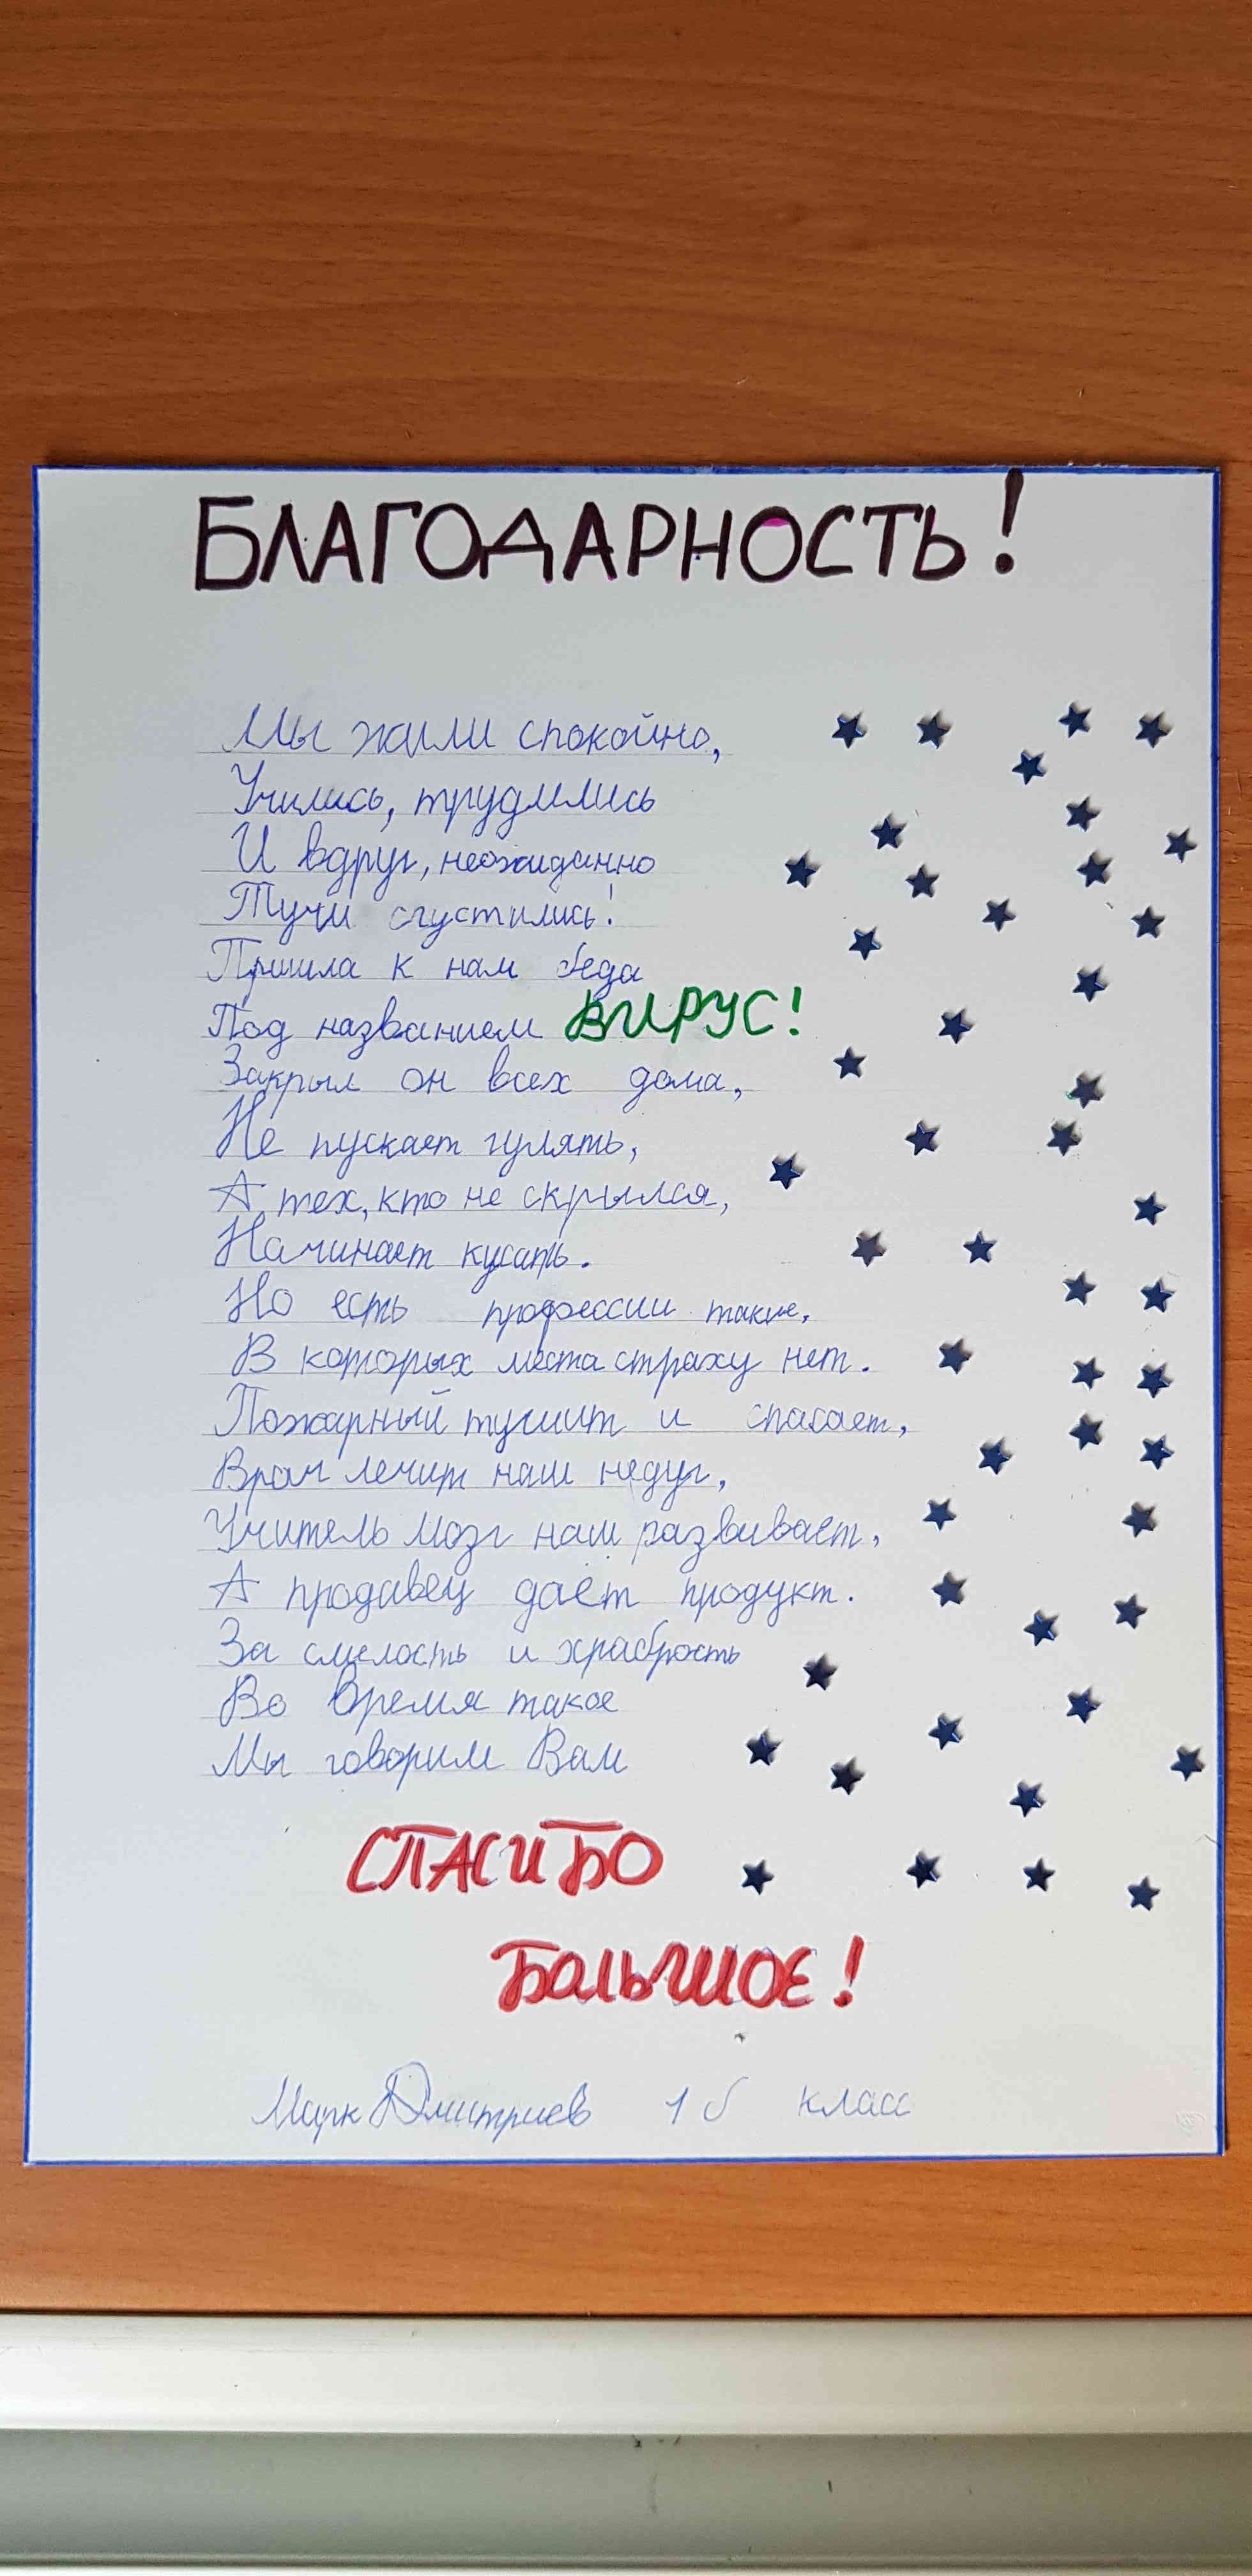 БЛАГОДАРНОСТЬ!
Мы жили спокойно,
Учились, трудились
И вдруг, неожиданно
Тучи сгустились!
Пришла к нам беда
Под названием ВИРУС!
Закрыл он всех дома,
Не пускает гулять,
А тех, кто не скрылся,
Начинает кусать.
Но есть профессии такие,
В которых места страху нет.
Пожарный тушит и спасает,
Врач лечит наш недуг,
Учитель мозг наш развивает,
А продавец даёт продукт.
За смелость и храбрость
Во время такое
Мы говорим Вам
СПАСИБО
БОЛЬШОЕ!
Марк Дмитриев 1 б класс